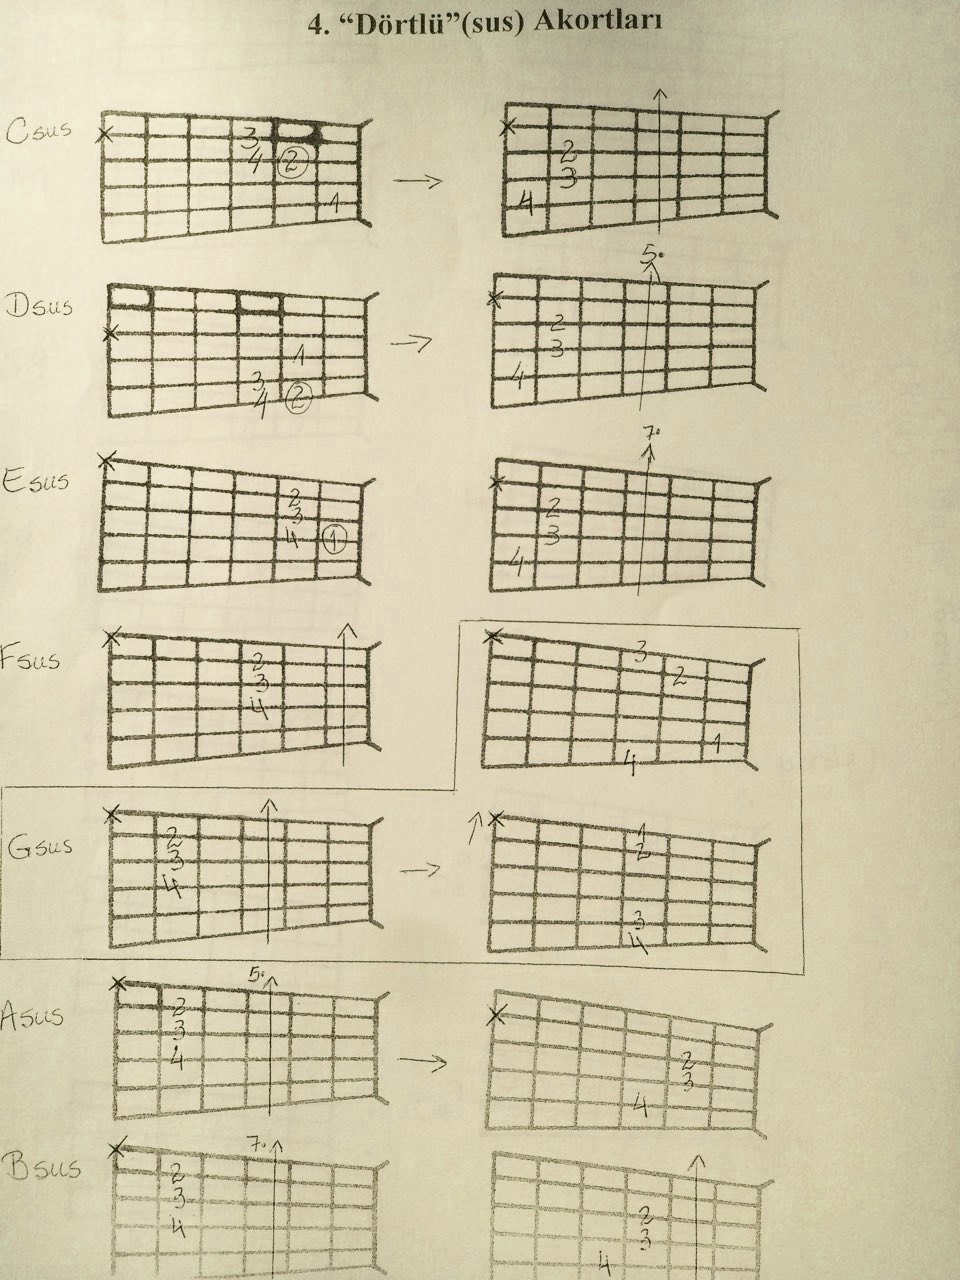 4. “Dörtlü”(sus) Akortları
Csus
3
4 2
1
2
3
4
Dsus
1
3
4 2
5.
2
3
4
Esus
2
3
4 1
7.
2
3
4
Fsus
2
3
4
3
2
1
4
Gsus
2
3
4
1
2
3
4
Asus
5.
2
3
4
2
3
4
Bsus
7.
2
3
4
2
3
4